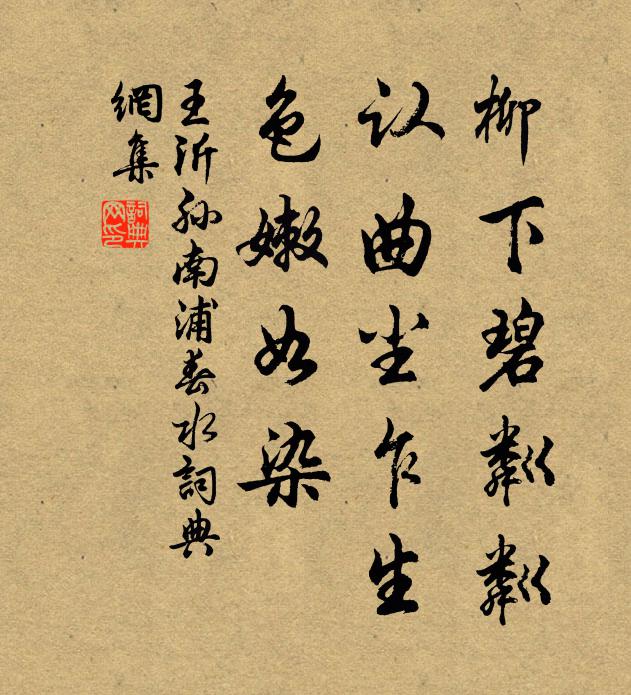 柳下碧粼粼
认曲尘乍生
色嫩如染
王沂孙南浦春水詞典
網集
詞典
网印